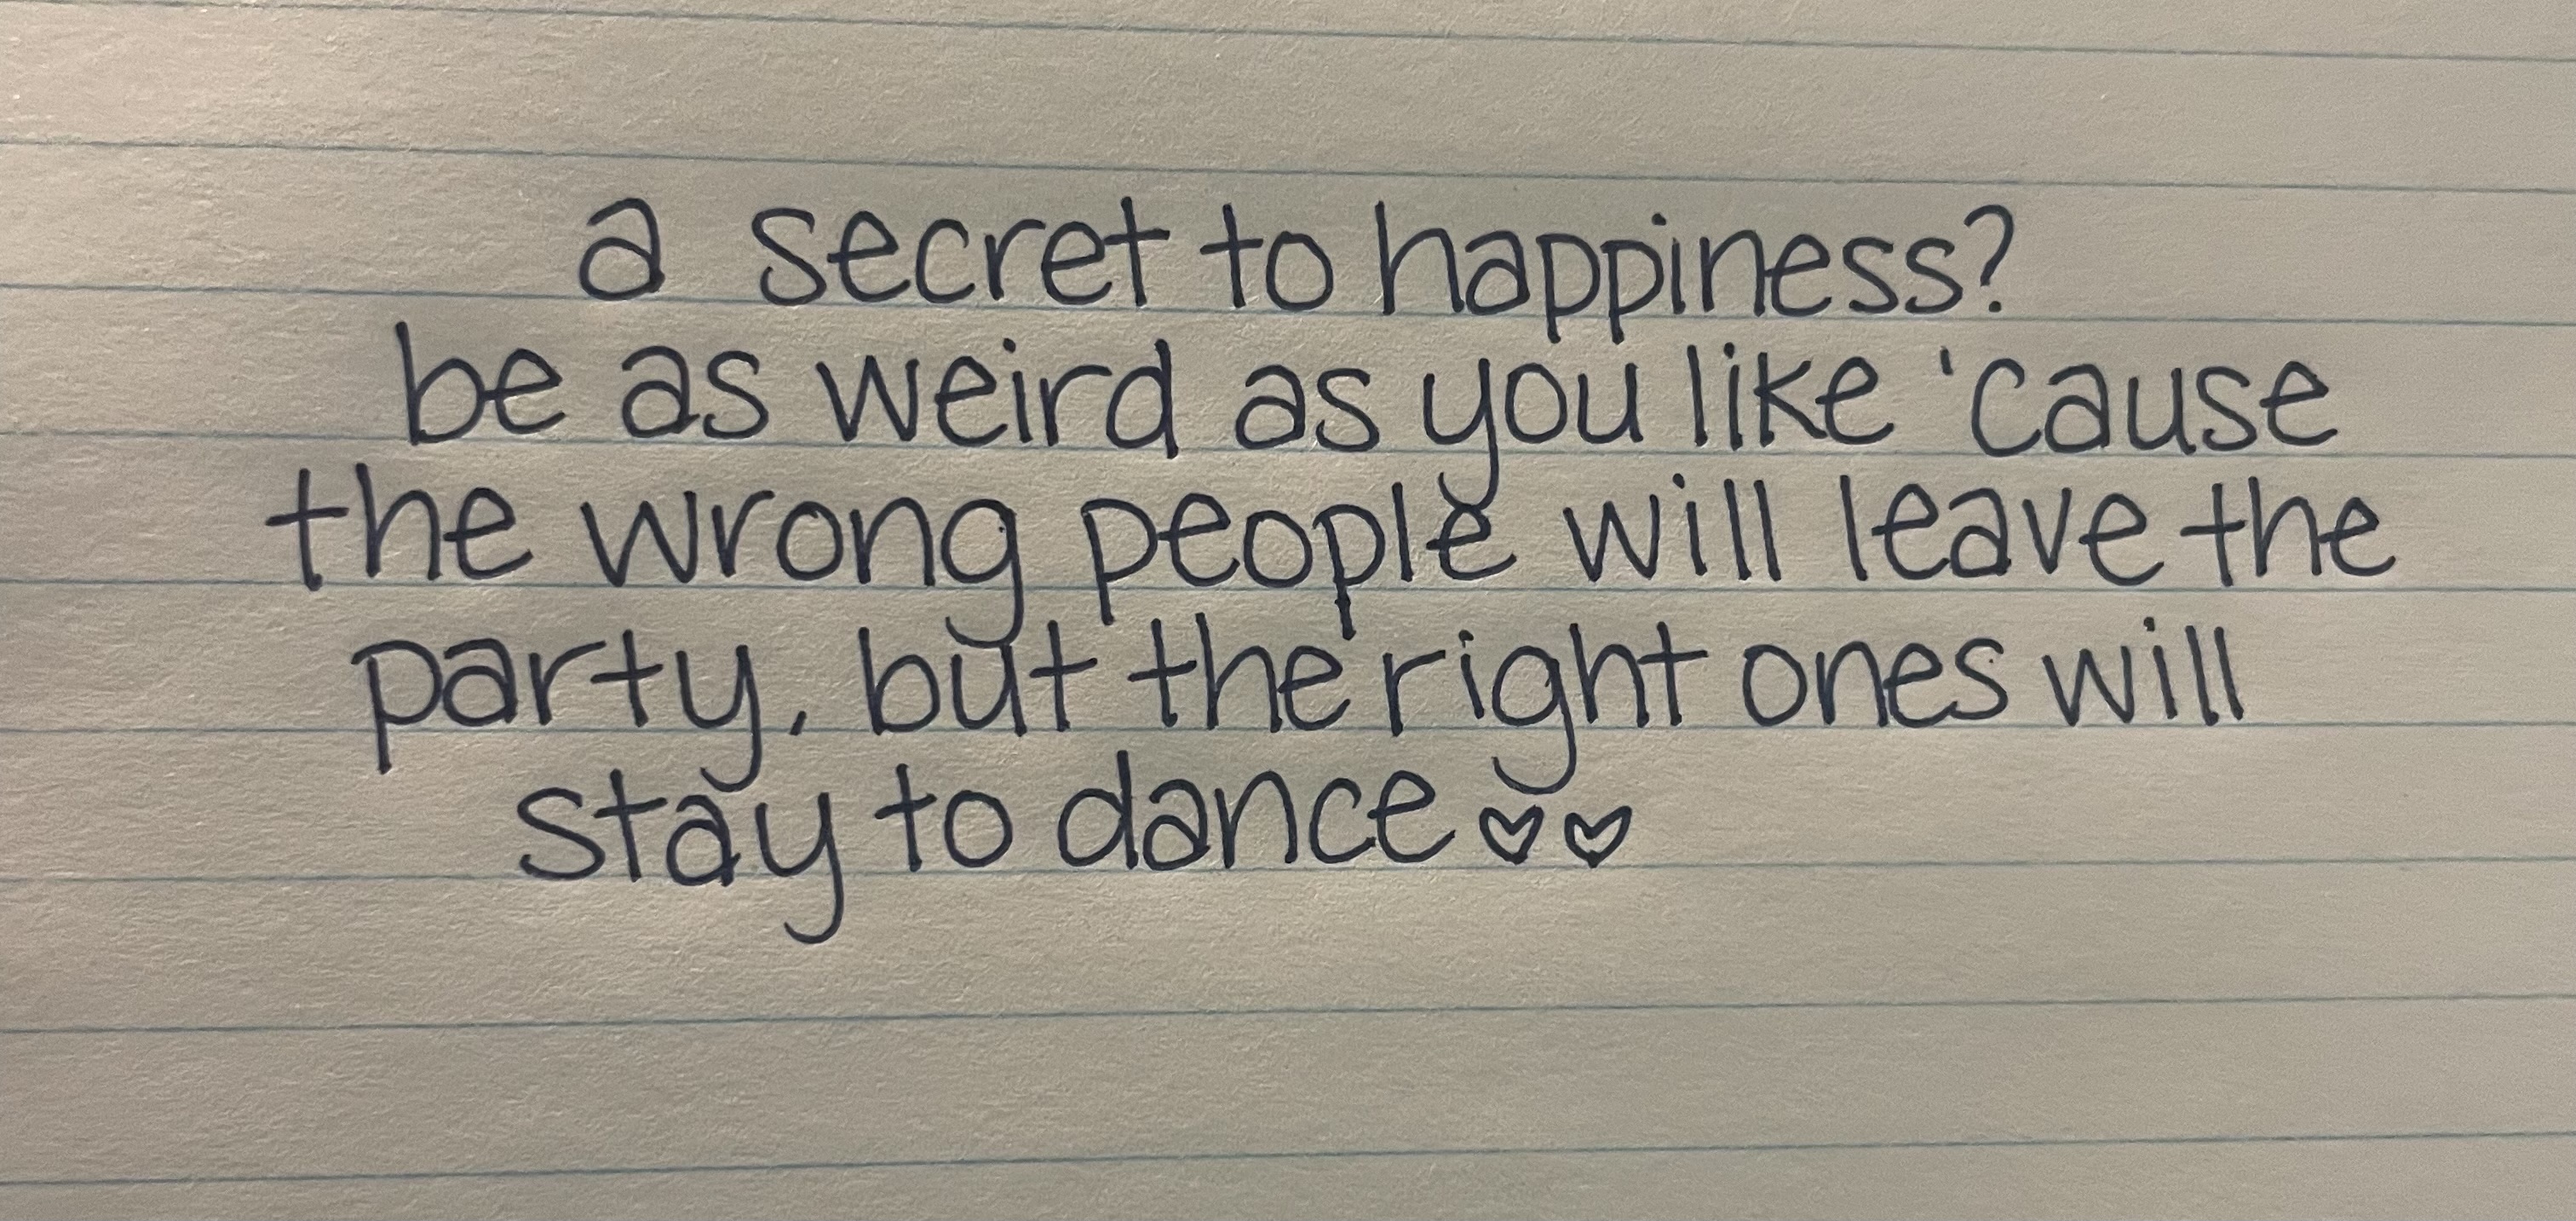 a secret to happiness?
be as weird as you like 'cause
the wrong people will leave the
party, but the right ones will
stay to dance♡♡